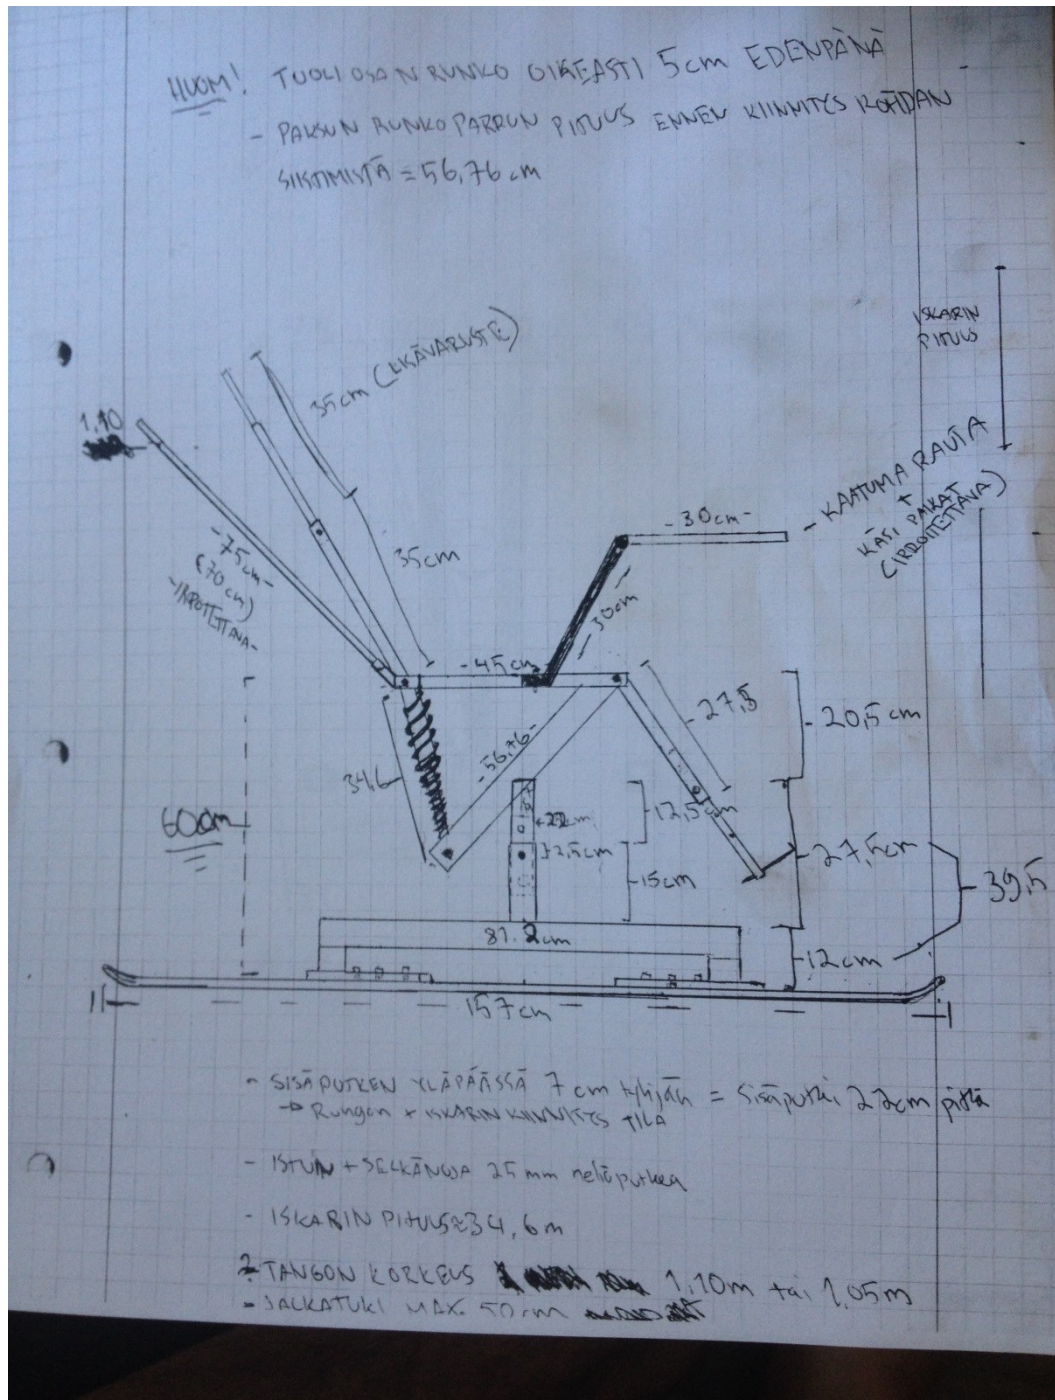 HUOM! TUOLIOSAN RUNKO OIKEASTI 5cm EDENPÄNÄ
- PAKSUN RUNKOPARRUN PITUUS ENNEN KIINNITYS KOHDAN
SIISTIMISTÄ = 56,76 cm
ISKARIN
PITUUS
35cm (LISÄVARUSTE)
1.10
- KAATUMA RAUTA
+
KÄSI PAIKAT
(IRROITETTAVA)
-30cm-
-75cm-
(70cm)
-IRROITETTAVA-
35cm
- 30cm -
-45cm
-27,5
-20,5cm
34,6
-56,76-
60cm
22cm
12,5cm
2,5cm
15cm
27,5cm
39,5
81.2cm
12cm
157cm
- SISÄPUTKEN YLÄPÄÄSSÄ 7cm tyhjää = Sisäputki 22cm pitkä
→ Rungon + ISKARIN KIINNITYS TILA
- ISTUIN + SELKÄNOJA 25mm neliöputkea
- ISKARIN PITUUS≈34,6m
? - TANGON KORKEUS 1,10m tai 1,05m
- JALKATUKI MAX. 50cm